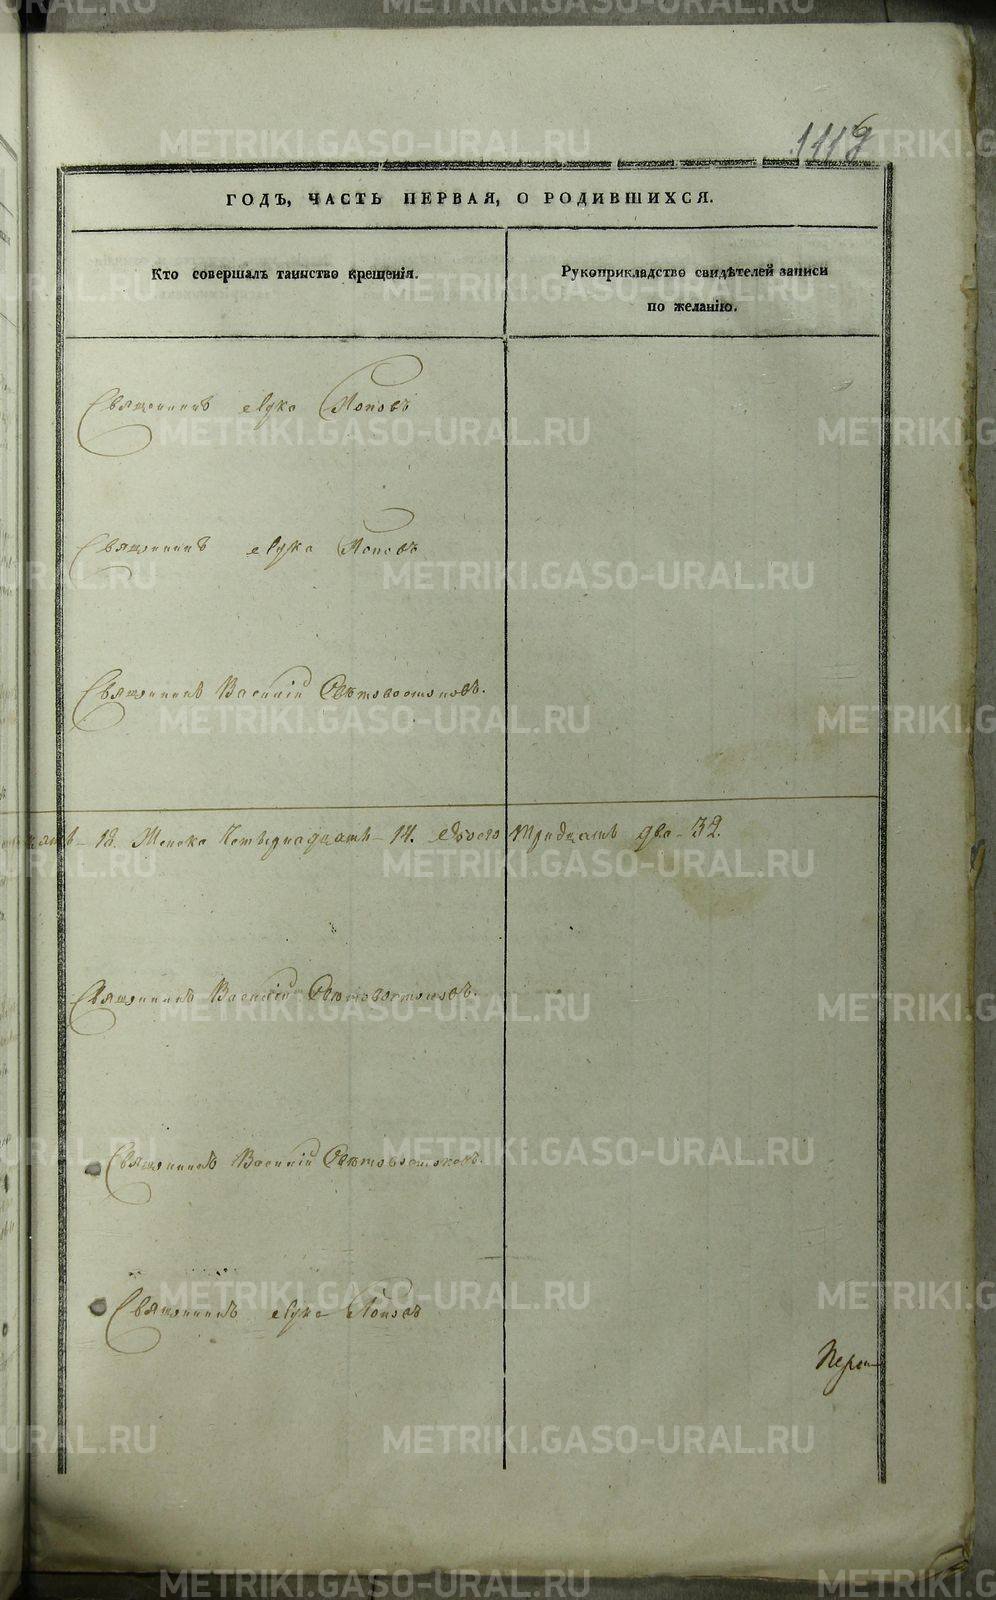 1119
ГОДЪ, ЧАСТЬ ПЕРВАЯ, О РОДИВШИХСЯ.
Кто совершалъ таинство крещенія.
Рукоприкладство свидѣтелей записи
по желанію.
Священникъ Лука Поповъ
Священникъ Лука Поповъ
Священникъ Василій Свѣтовостоковъ.
18. Женска Четырнадцать - 14. Обоего Тридцать два - 32.
Священникъ Василій Свѣтовостоковъ.
Священникъ Василій Свѣтовостоковъ.
Священникъ Лука Поповъ
METRIKI.GASO-URAL.RU